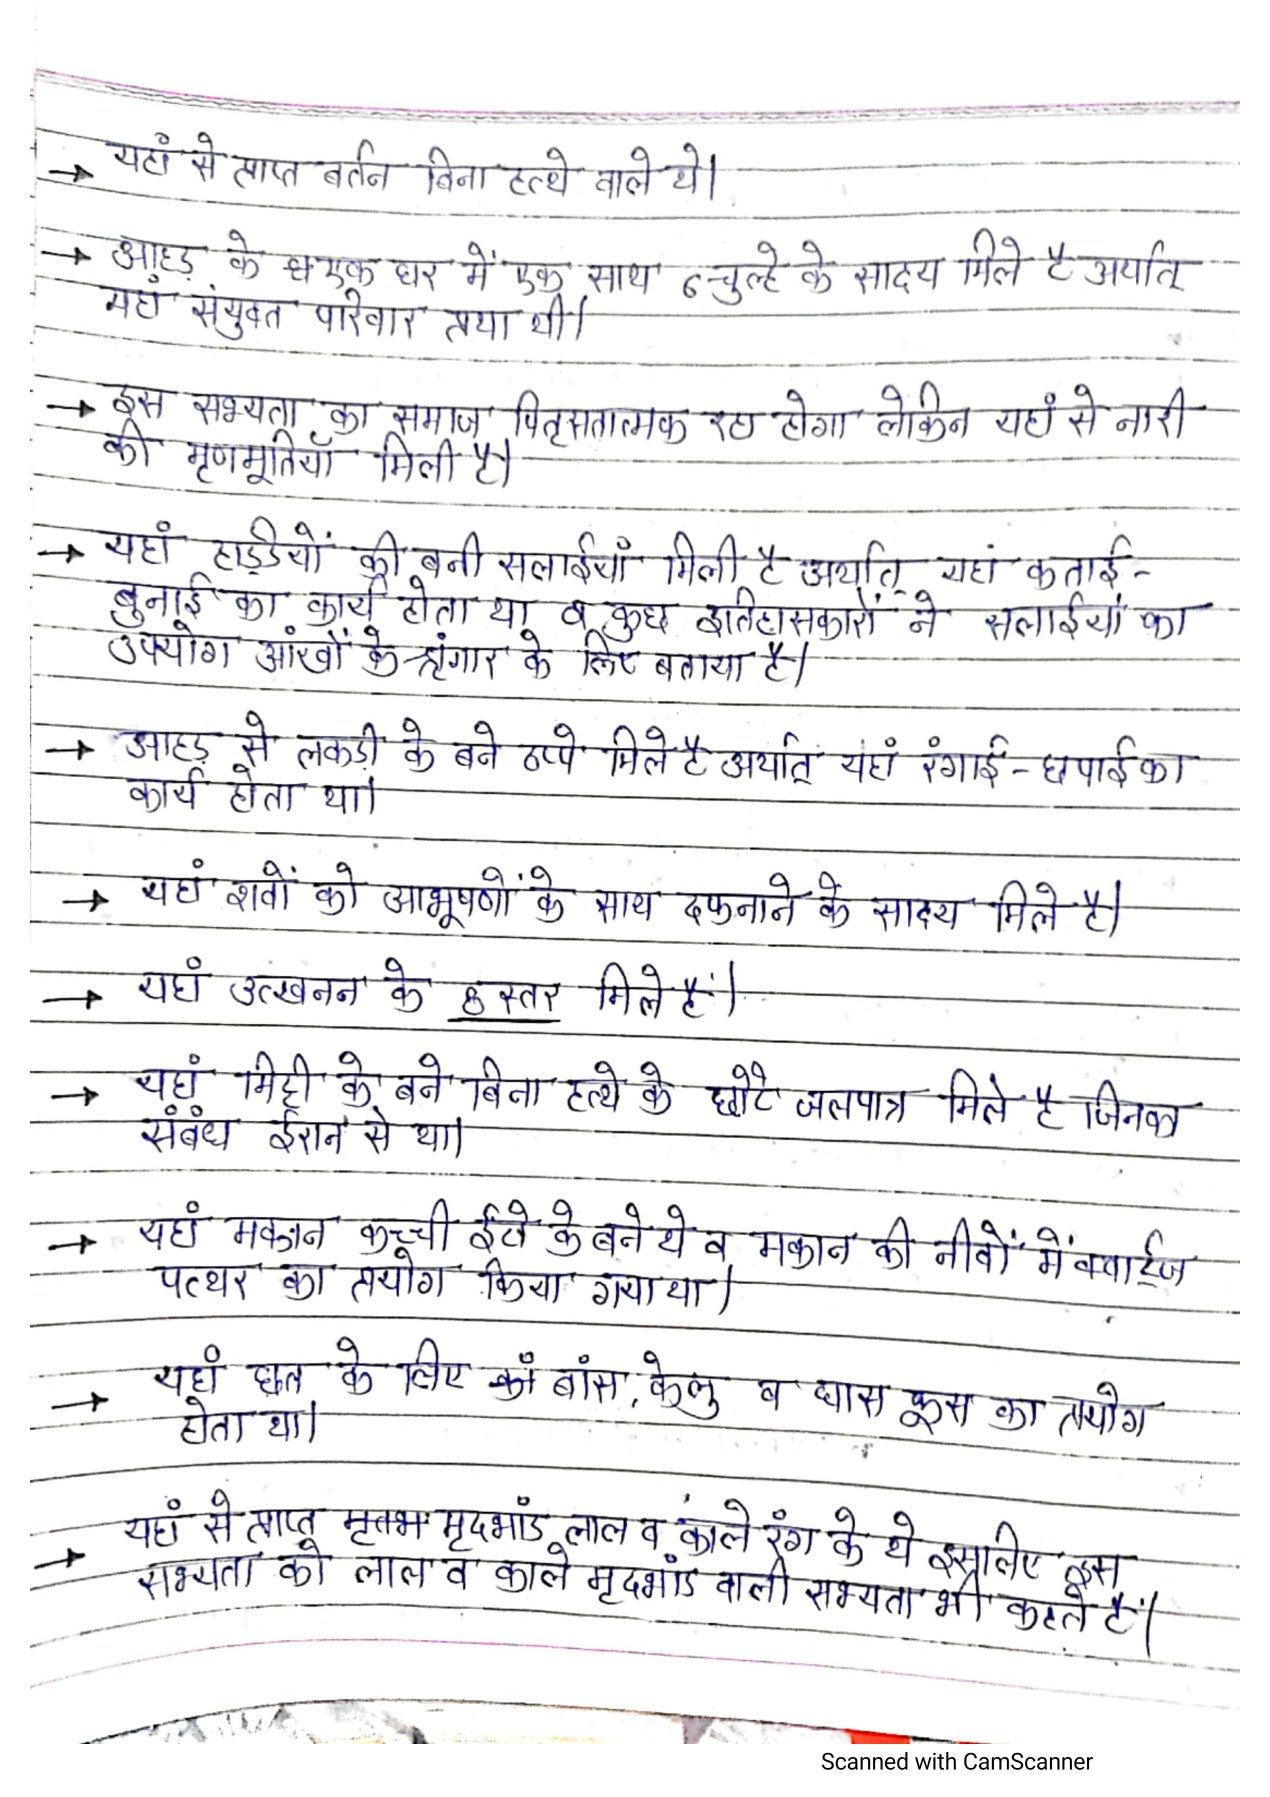 → यहाँ से प्राप्त बर्तन बिना हत्थे वाले थे।
→ आहड़ के एक घर में एक साथ 6 चुल्हे के साक्ष्य मिले है अर्थात्
यहाँ संयुक्त परिवार प्रथा थी।
→ इस सभ्यता का समाज पितृसतात्मक रहा होगा लेकिन यहाँ से नारी
की मृणमूर्तियाँ मिली है।
→ यहाँ हड्डियों की बनी सलाईयाँ मिली है अर्थात् यहाँ कताई-
बुनाई का कार्य होता था व कुछ इतिहासकारों ने सलाईयां का
उपयोग आंखों के श्रृंगार के लिए बताया है।
→ आहड़ से लकड़ी के बने ठप्पे मिले है अर्थात् यहाँ रंगाई-छपाई का
कार्य होता था।
→ यहाँ शवों को आभूषणों के साथ दफनाने के साक्ष्य मिले है।
→ यहाँ उत्खनन के 8 स्तर मिले हैं।
→ यहाँ मिट्टी के बने बिना हत्थे के छोटे जलपात्र मिले है जिनका
संबंध ईरान से था।
→ यहाँ मकान कच्ची ईटो के बने थे व मकान की नीवों में क्वार्ट्ज
पत्थर का प्रयोग किया गया था।
→ यहाँ छत के लिए बांस, केलु व घास फूस का प्रयोग
होता था।
→ यहाँ से प्राप्त मृदभांड लाल व काले रंग के थे इसलिए इस
सभ्यता को लाल व काले मृदभांड वाली सभ्यता भी कहते हैं।
Scanned with CamScanner